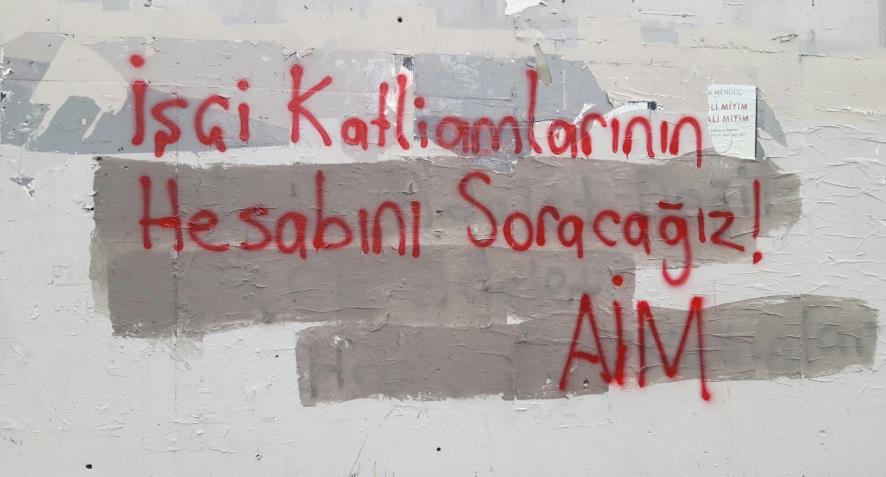 İşçi Katliamlarının
Hesabını Soracağız!
AİM
MENGÜÇ
MİYİM
MIYIM